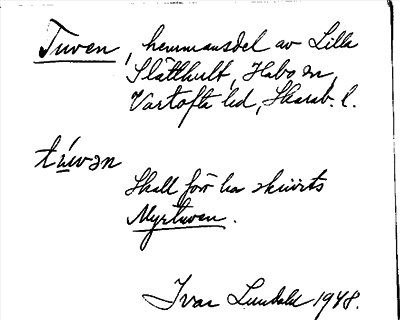 Tuven, hemmansdel av Lilla
Slätthult, Habo sn,
Vartofta hd, Skarab. l.
túvən
Skall förr ha skrivits
Myrtuven.
Ivar Lundahl 1948.